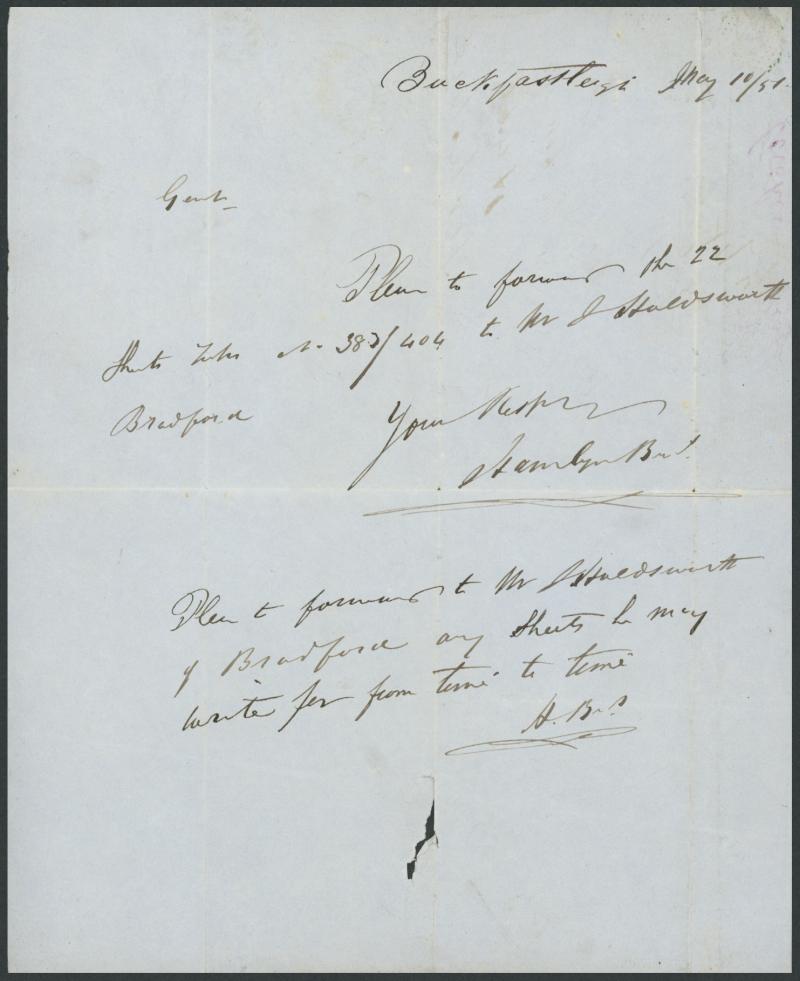 Buckfastleigh May 10/51.
Gent
Please to forward the 22
Sheets No 383/404 to Mr J Holdsworth
Bradford
Your Respy
Hamlyn Bros
Please to forward to Mr J Holdsworth
of Bradford any Sheets he may
write for from time to time
H. Bros